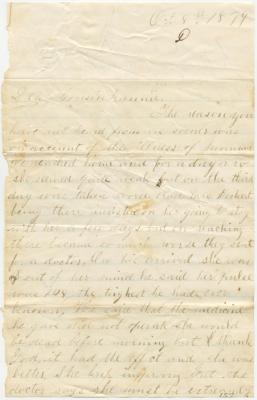 Oct 8th 1879
Dear Cousin
The reason you
have not heard from me sooner was
on account of the illness of
we reached home and for a day or so
she seemed quite weak but on the third
day was taken worse
being there insisted on her going to stay
with her a few days but on reaching
there became so much worse they sent
for a doctor. On his arrival she was
out of her mind he said her pulse
was 148, the highest he had ever
known, he said that if the medicine
he gave did not operate she would
be dead before morning but I thank
God, it had the effect and she was
better. She kept improving but the
doctor says she must be extremely